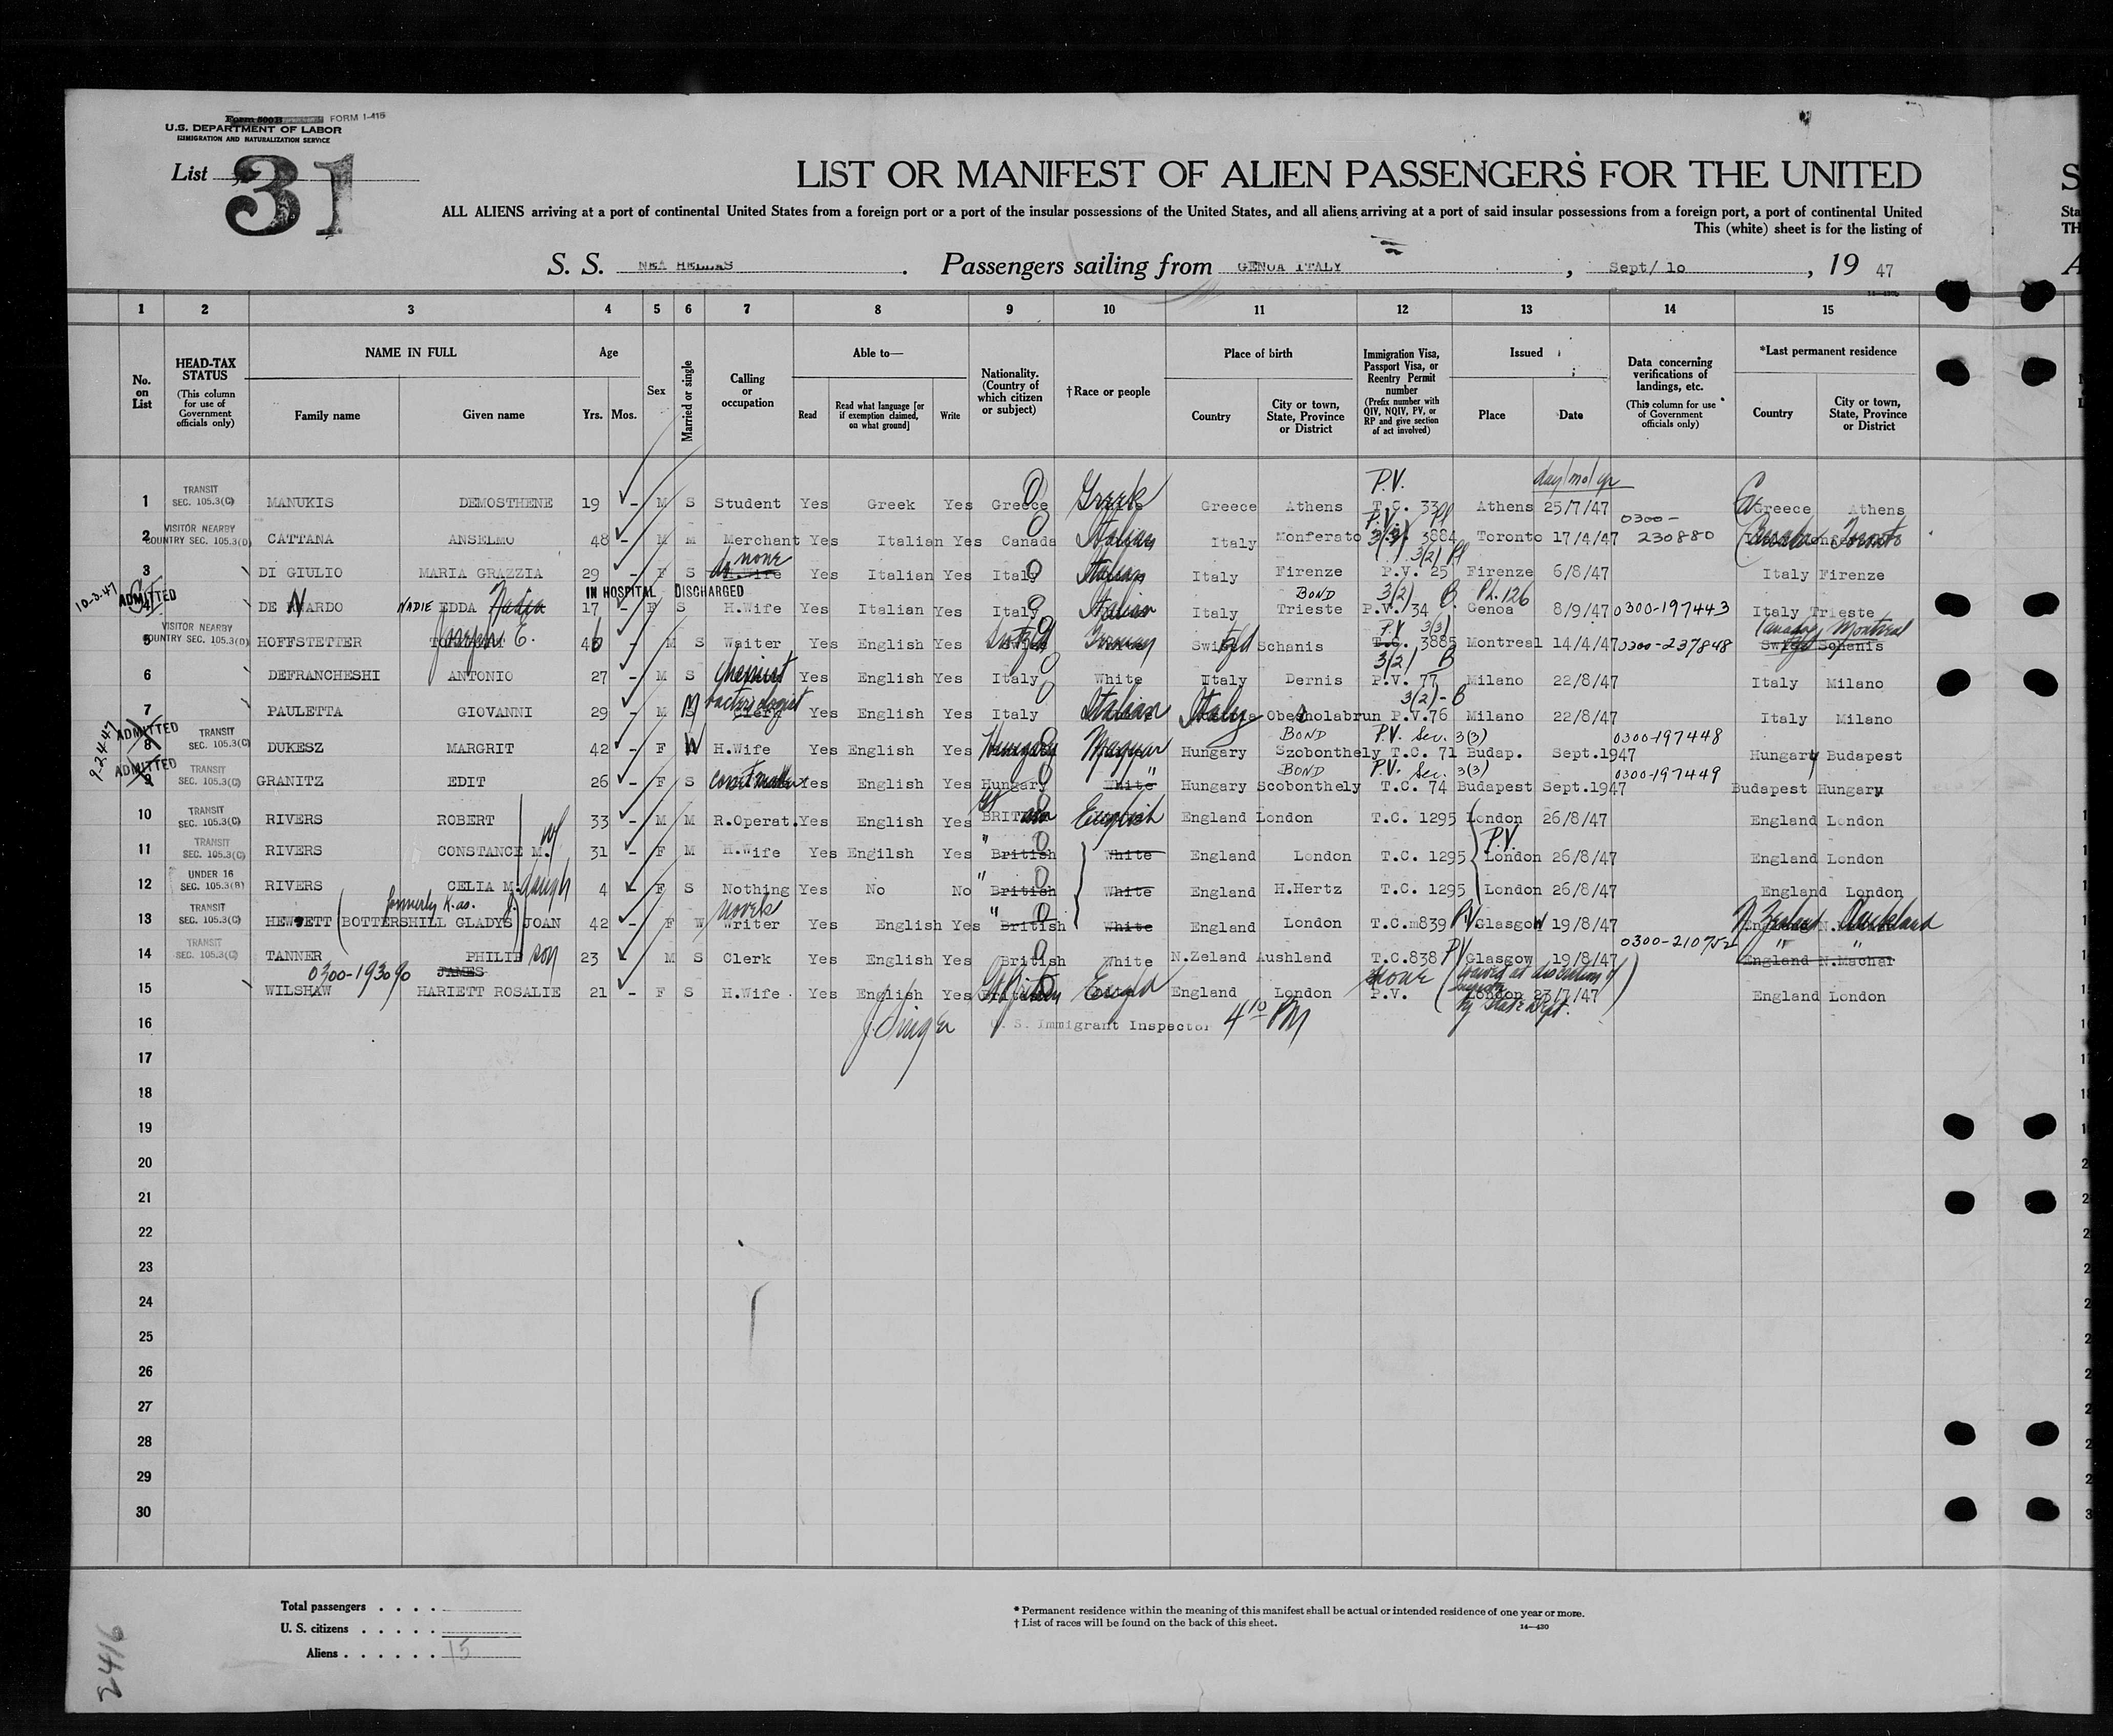 Form 500B FORM I-415
U.S. DEPARTMENT OF LABOR
IMMIGRATION AND NATURALIZATION SERVICE
List 31
LIST OR MANIFEST OF ALIEN PASSENGERS FOR THE UNITED
ALL ALIENS arriving at a port of continental United States from a foreign port or a port of the insular possessions of the United States, and all aliens arriving at a port of said insular possessions from a foreign port, a port of continental United
This (white) sheet is for the listing of
S. S. NEA HELLAS. Passengers sailing from GENOA ITALY, Sept/ 10, 19 47
1 2 3 4 5 6 7 8 9 10 11 12 13 14 15
No. on List
HEAD-TAX STATUS (This column for use of Government officials only)
NAME IN FULL Family name Given name
Age Yrs. Mos.
Sex
Married or single
Calling or occupation
Able to— Read Read what language [or if exemption claimed, on what ground] Write
Nationality. (Country of which citizen or subject)
†Race or people
Place of birth Country City or town, State, Province or District
Immigration Visa, Passport Visa, or Reentry Permit number (Prefix number with QIV, NQIV, PV, or RP and give section of act involved)
Issued Place Date
Data concerning verifications of landings, etc. (This column for use of Government officials only)
*Last permanent residence Country City or town, State, Province or District
P.V. day/mo/yr
1 TRANSIT SEC. 105.3(C) MANUKIS DEMOSTHENE 19 - M S Student Yes Greek Yes Greece Greek Greece Athens T.C. 339 Athens 25/7/47 Greece Athens
2 VISITOR NEARBY COUNTRY SEC. 105.3(D) CATTANA ANSELMO 48 - M M Merchant Yes Italian Yes Canada Italian Italy Monferato P.V. 3884 Toronto 17/4/47 0300-230880 Canada Toronto
3 DI GIULIO MARIA GRAZZIA 29 - F S H.Wife none Yes Italian Yes Italy Italian Italy Firenze 3(2) P.V. 25 Firenze 6/8/47 Italy Firenze
10-3-47 ADMITTED IN HOSPITAL DISCHARGED
4 DE NARDO NADIE EDDA Nadia 17 - F S H.Wife Yes Italian Yes Italy Italian Italy BOND Trieste 3(2) B P.V. 34 Genoa 8/9/47 0300-197443 Italy Trieste
5 VISITOR NEARBY COUNTRY SEC. 105.3(D) HOFFSTETTER Joseph E. 46 - M S Waiter Yes English Yes Switzld German Switzld Schanis P.V. 3(3) T.C. 3885 Montreal 14/4/47 0300-237848 Canada Montreal Schanis
6 DEFRANCHESHI ANTONIO 27 - M S Chemist Yes English Yes Italy White Italy Dernis 3(2) B P.V. 77 Milano 22/8/47 Italy Milano
7 PAULETTA GIOVANNI 29 - M M bacteriologist Clerg Yes English Yes Italy Italian Italy Obesholabrun 3(2)-B P.V.76 Milano 22/8/47 Italy Milano
9-24-47 ADMITTED
8 TRANSIT SEC. 105.3(C) DUKESZ MARGRIT 42 - F W H.Wife Yes English Yes Hungary Magyar Hungary BOND Szobonthely P.V. Sec. 3(3) T.C. 71 Budap. Sept.1947 0300-197448 Hungary Budapest
ADMITTED
9 TRANSIT SEC. 105.3(C) GRANITZ EDIT 26 - F S Yes English Yes Hungary White " Hungary BOND Scobonthely P.V. Sec. 3(3) T.C. 74 Budapest Sept.1947 0300-197449 Budapest Hungary
10 TRANSIT SEC. 105.3(C) RIVERS ROBERT 33 - M M R.Operat. Yes English Yes English England London T.C. 1295 London 26/8/47 England London
11 TRANSIT SEC. 105.3(C) RIVERS CONSTANCE M. wf 31 - F M H.Wife Yes Engilsh Yes " British White England London T.C. 1295 P.V. London 26/8/47 England London
12 UNDER 16 SEC. 105.3(B) RIVERS CELIA M. daugh 4 - F S Nothing Yes No No " British White England H.Hertz T.C. 1295 London 26/8/47 England London
13 TRANSIT SEC. 105.3(C) HEWETT (formerly K.as. BOTTERSHILL GLADYS J.) JOAN 42 - F W Novels Writer Yes English Yes " British White England London T.C.m839 PV Glasgow 19/8/47 N. Zealand Auckland
14 TRANSIT SEC. 105.3(C) TANNER PHILIP JAMES son 23 - M S Clerk Yes English Yes British White N.Zeland Aushland T.C.838 PV Glasgow 19/8/47 0300-210752 " " England N.Machal
0300-193090
15 WILSHAW HARIETT ROSALIE 21 - F S H.Wife Yes English Yes Gt Britain Engld England London None P.V. (waived at discretion of by State Dept.) London 23/7/47 England London
16 J Singer U. S. Immigrant Inspector 4 10 PM
17
18
19
20
21
22
23
24
25
26
27
28
29
30
Total passengers . . . .
U. S. citizens . . . . .
Aliens . . . . . . 15
* Permanent residence within the meaning of this manifest shall be actual or intended residence of one year or more.
† List of races will be found on the back of this sheet.
14—430
2416